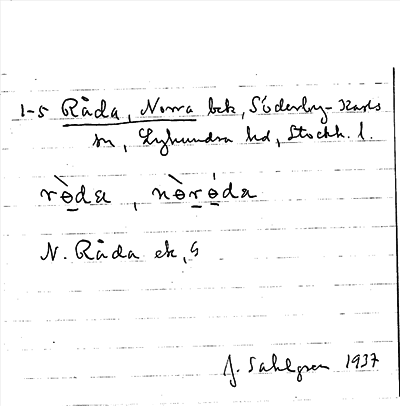 1-5 Råda, Norra bek, Söderby-Karls
sn, Lyhundra hd, Stockh. l.
rò̱da, nò̱ró̱da
N. Råda ek, G
J. Sahlgren 1937